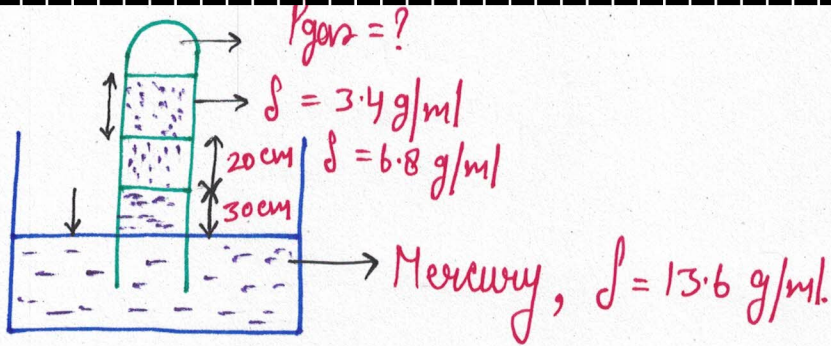 Pgas = ?
δ = 3.4 g/ml
20 cm
δ = 6.8 g/ml
30cm
Mercury, δ = 13.6 g/ml.